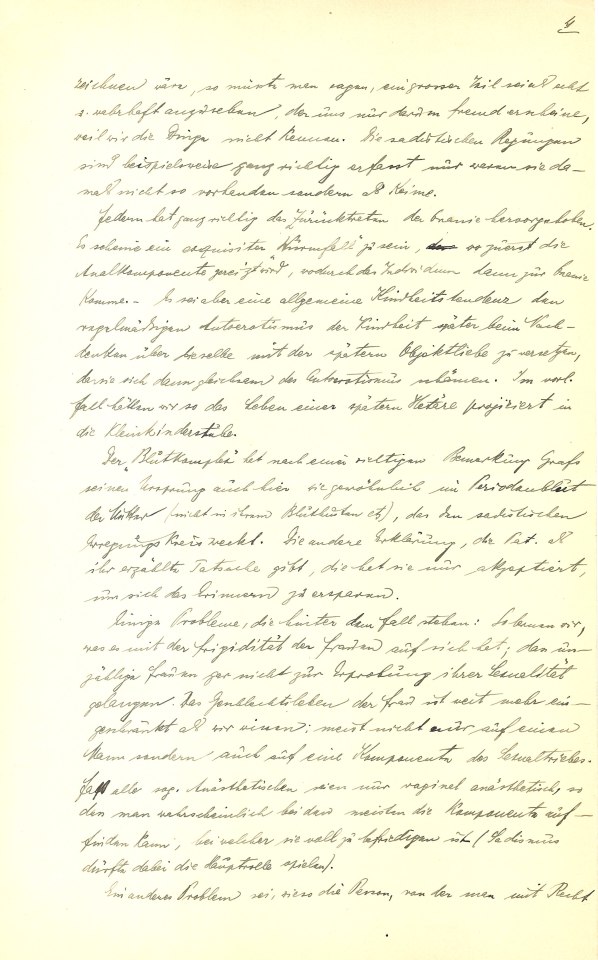 4
zeichnen wäre, so müsste man sagen, ein grosser Teil sei als echt
u. wahrhaft anzusehen, der uns nur darum fremd erscheine,
weil wir die Dinge nicht kennen. Die sadistischen Regungen
sind beispielsweise ganz richtig erfasst nur waren sie da-
mals nicht so vorhanden sondern als Keime.
Federn hat ganz richtig das Zurücktreten der Onanie hervorgehoben.
Es scheine ein exquisiter zu sein, wo zuerst die
Analkomponente gereizt wird, wodurch das Individuum dann zur Onanie
komme. - Es sei aber eine allgemeine Kindheitstendenz den
regelmässigen Autoerotismus der Kindheit später beim Nach-
denken über dieselbe mit der spätern Objektliebe zu versetzen,
da sie sich dann gleichsam des Autoerotismus schämen. Im vorl.
Fall hätten wir so das Leben einer spätern Hetäre projiziert in
die Kleinkinderstube.
Der "Blutkomplex" hat nach einer richtigen Bemerkung Grafs
seinen Ursprung auch hier wie gewöhnlich im Periodenblut
der Mutter (nicht in ihrem Bluthusten etc), das den sadistischen
Erregungskreis weckt. Die andere Erklärung, die Pat. als
ihr erzählte Tatsache gibt, die hat sie nur akzeptiert,
um sich das Erinnern zu ersparen.
Einige Probleme, die hinter dem Fall stehen: So lernen wir,
was es mit der Frigidität der Frauen auf sich hat; dass un-
zählige Frauen gar nicht zur Erprobung ihrer Sexualität
gelangen. Das Geschlechtsleben der Frau ist weit mehr ein-
geschränkt als wir wissen: meist nicht nur auf einen
Mann sondern auch auf eine Komponente des Sexualtriebes.
Fast alle sog. Anästhetischen seien nur vaginal anästhetisch, so
dass man wahrscheinlich bei den meisten die Komponente auf-
finden kann, bei welcher sie voll zu befriedigen ist (Sadismus
dürfte dabei die Hauptrolle spielen).
Ein anderes Problem sei, wieso die Person, von der man mit Recht